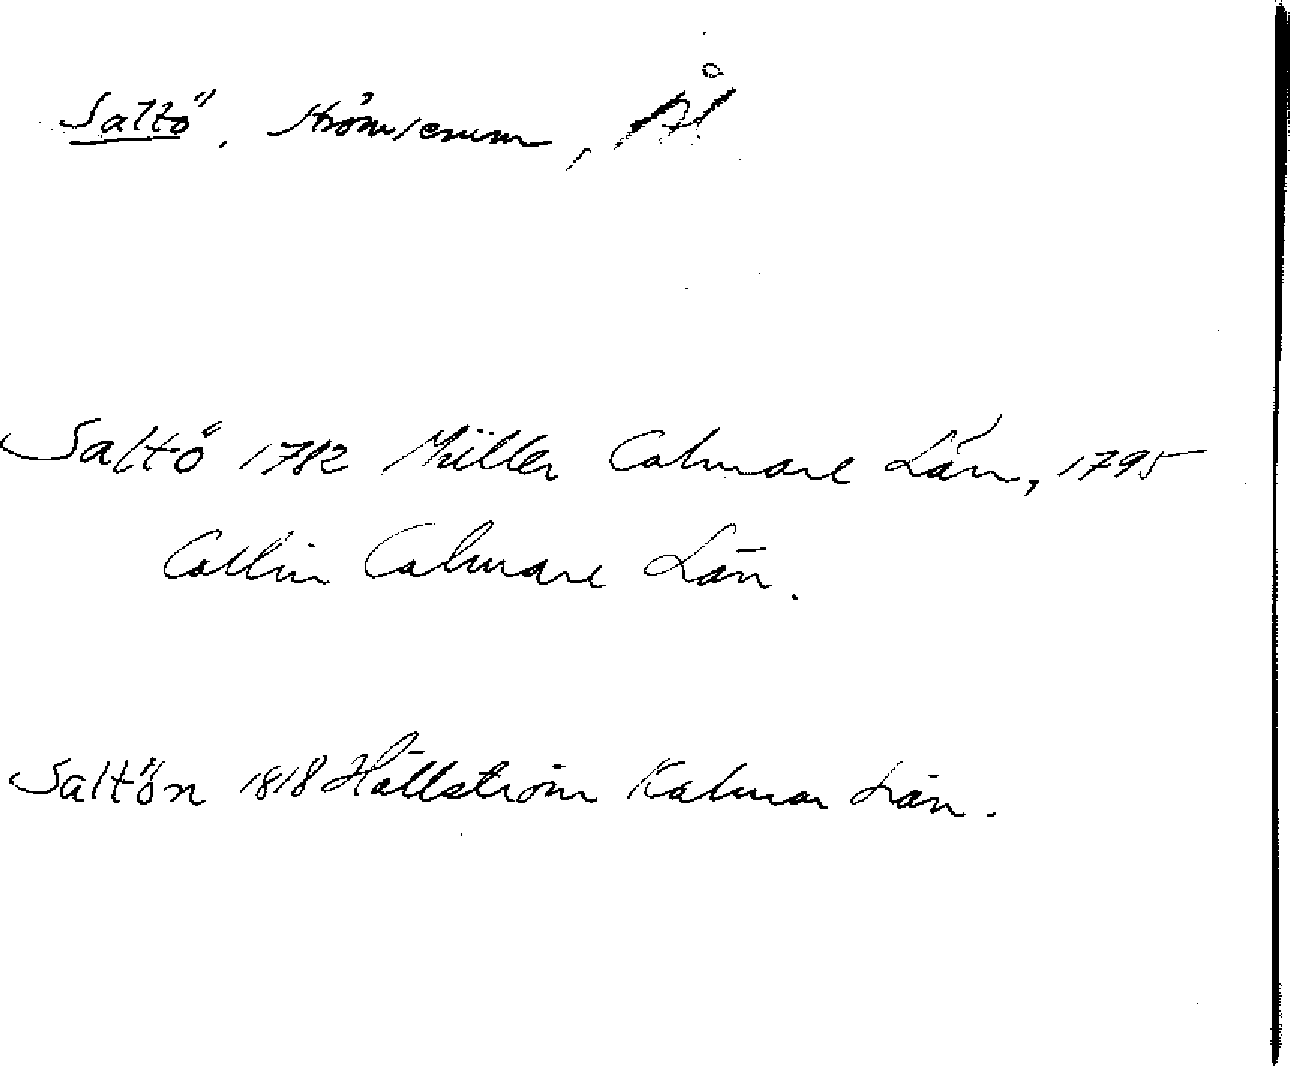 Saltö, Strömserum, Ål
Saltö 1782 Müller Calmare Län, 1795
Collin Calmare Län.
Saltön 1818 Hällström Kalmar Län.